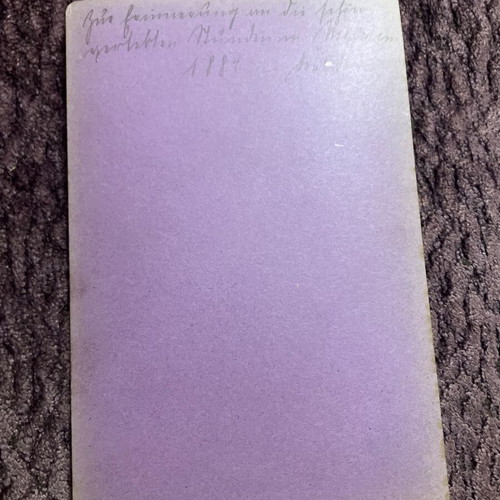 Zur Erinnerung an die schön
verlebten Stunden
1884